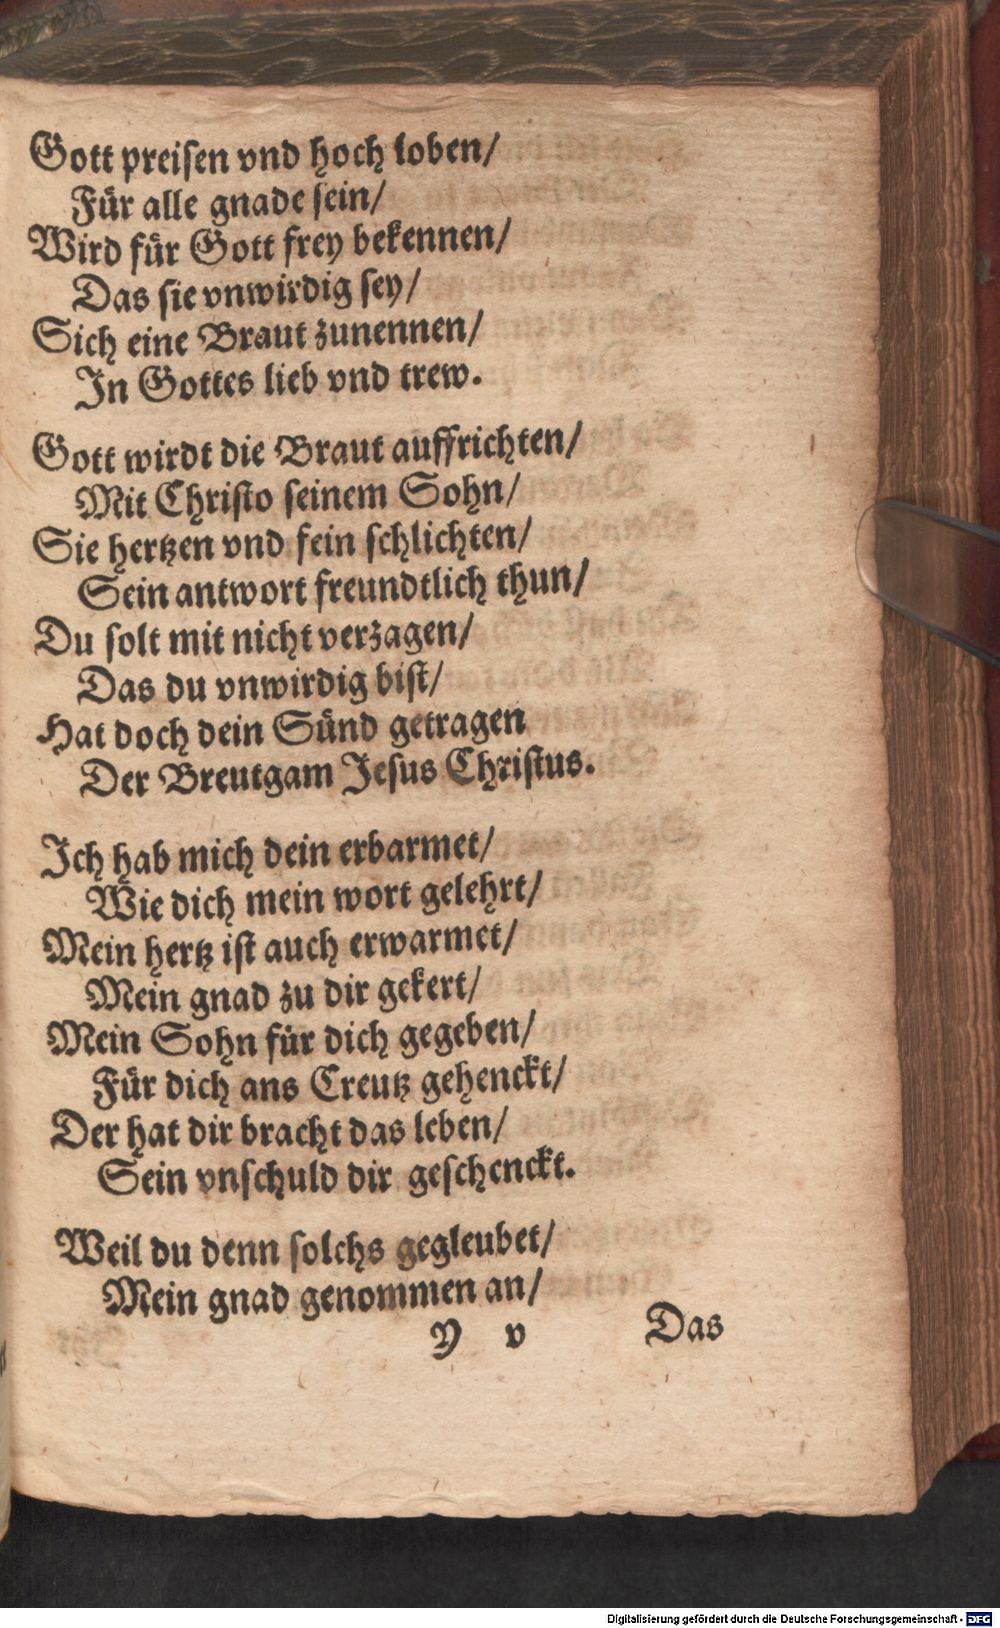 Gott preisen vnd hoch loben/
Für alle gnade sein/
Wird für Gott frey bekennen/
Das sie vnwirdig sey/
Sich eine Braut zunennen/
In Gottes lieb vnd trew.
Gott wirdt die Braut auffrichten/
Mit Christo seinem Sohn/
Sie hertzen vnd fein schlichten/
Sein antwort freundtlich thun/
Du solt mit nicht verzagen/
Das du vnwirdig bist/
Hat doch dein Sünd getragen
Der Breutgam Jesus Christus.
Ich hab mich dein erbarmet/
Wie dich mein wort gelehrt/
Mein hertz ist auch erwarmet/
Mein gnad zu dir gekert/
Mein Sohn für dich gegeben/
Für dich ans Creutz gehenckt/
Der hat dir bracht das leben/
Sein vnschuld dir geschenckt.
Weil du denn solchs gegleubet/
Mein gnad genommen an/
Y v Das
Digitalisierung gefördert durch die Deutsche Forschungsgemeinschaft - DFG